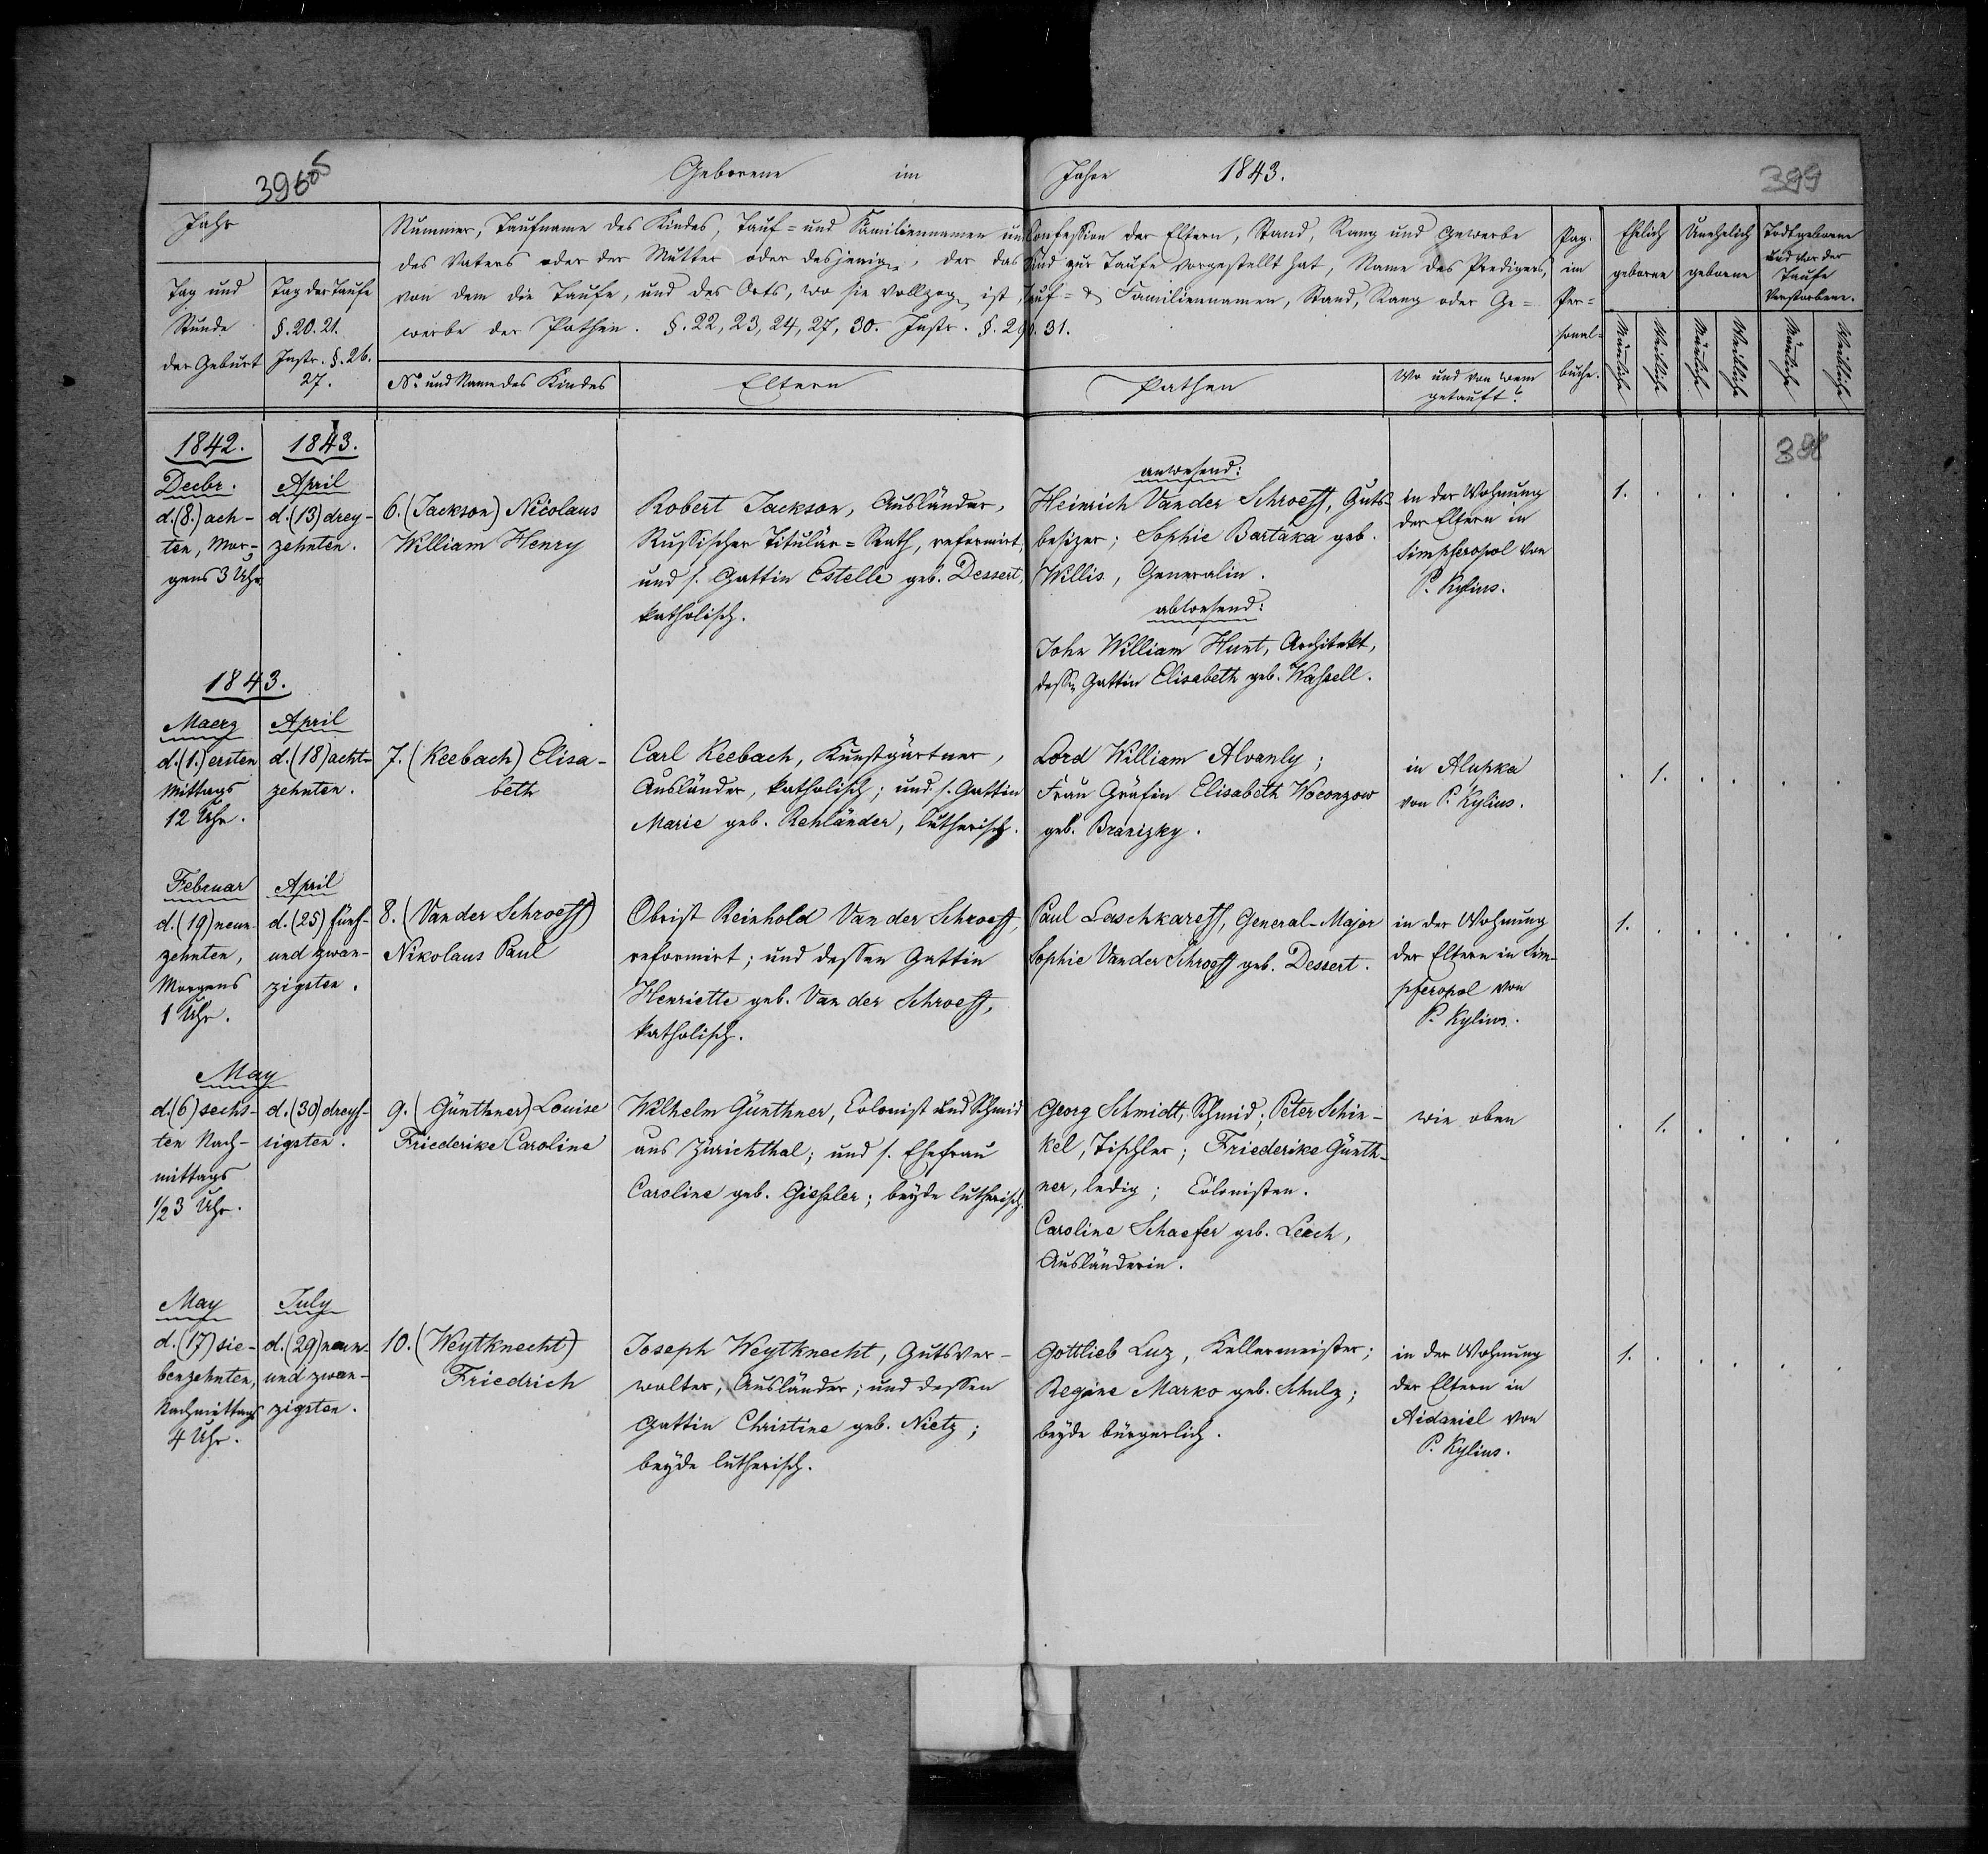 Geborene im Jahre 1843.
399
Jahr
Tag und
Stunde
der Geburt
Tag der Taufe
§. 20. 21.
Instr. §. 26.
27.
Nummer, Taufname des Kindes, Tauf- und Familiennamen und Confession der Eltern, Stand, Rang und Gewerbe
des Vaters oder der Mutter oder desjenigen, der das Kind zur Taufe vorgestellt hat, Name des Predigers,
von dem die Taufe, und des Orts, wo sie vollzog. ist, Tauf- & Familiennamen, Stand, Rang oder Ge-
werbe der Pathen. §. 22, 23, 24, 27, 30. Instr. §. 29. 31.
No und Name des Kindes
Eltern
Pathen
Wo und von wem
getauft?
Pag.
im
Per-
sonal-
buche.
Ehelich
geborene
Unehelich
geborene
Todtgeborene
und vor der
Taufe
Verstorbene.
Männliche
Weibliche
Männliche
Weibliche
Männliche
Weibliche
1842.
Decbr.
d. (8.) ach-
ten, Mor-
gens 3 Uhr
1843.
April
d. (13) drey-
zehnten.
6. (Jackson) Nicolaus
William Henry
Robert Jackson, Ausländer,
Russischer Titulär-Rath, reformirt,
und s. Gattin Estelle geb. Dessert,
katholisch.
anwesend:
Heinrich Van der Schroeff, Guts-
besizer; Sophie Bartaka geb.
Willis, Generalin.
abwesend:
John William Hunt, Architekt,
dessen Gattin Elisabeth geb. Wassell.
in der Wohnung
der Eltern in
Simpferopol von
P. Kylius.
1. . . . . .
1843.
Maerz
d. (1.) ersten
Mittags
12 Uhr.
April
d. (18) acht-
zehnten.
7. (Keebach) Elisa-
beth
Carl Keebach, Kunstgärtner,
Ausländer, katholisch; und s. Gattin
Marie geb. Rehländer, lutherisch.
Lord William Alvanly;
Frau Gräfin Elisabeth Woronzow
geb. Branizky.
in Alupka
von P. Kylius.
. 1. . . . .
Februar
d. (19) neun-
zehnten,
Morgens
1 Uhr.
April
d. (25) fünf-
und zwan-
zigsten.
8. (Van der Schroeff)
Nikolaus Paul
Obrist Reinhold Van der Schroeff,
reformirt; und dessen Gattin
Henriette geb. Van der Schroeff,
katholisch.
Paul Laschkareff, General-Major
Sophie Van der Schroeff geb. Dessert.
in der Wohnung
der Eltern in Sim-
pferopol von
P. Kylius.
1. . . . . .
May
d. (6) sechs-
ten Nach-
mittags
1/2 3 Uhr.
d. (30) dreys-
sigsten.
9. (Günthner) Louise
Friederike Caroline
Wilhelm Günthner, Colonist und Schmid
aus Zürichthal; und s. Ehefrau
Caroline geb. Giessler; beyde lutherisch.
Georg Schmidt, Schmid; Peter Schin-
kel, Tischler; Friederike Günth-
ner, ledig; Colonisten.
Caroline Schaefer geb. Lesch,
Ausländerin.
wie oben
. 1. . . . .
May
d. (17) sie-
benzehnten,
Nachmittags
4 Uhr.
July
d. (29) neun-
und zwan-
zigsten.
10. (Weytknecht)
Friedrich
Joseph Weytknecht, Gutsver-
walter, Ausländer; und dessen
Gattin Christine geb. Nietz;
beyde lutherisch.
Gottlieb Luz, Kellermeister;
Regine Marko geb. Schulz;
beyde bürgerlich.
in der Wohnung
der Eltern in
Aidaniel von
P. Kylius.
1. . . . . .